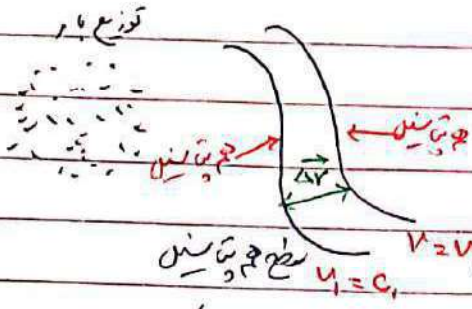 توزیع بار
هم پتانسیل
هم پتانسیل
Δr
سطح هم پتانسیل
V₁ = C₁
V = V